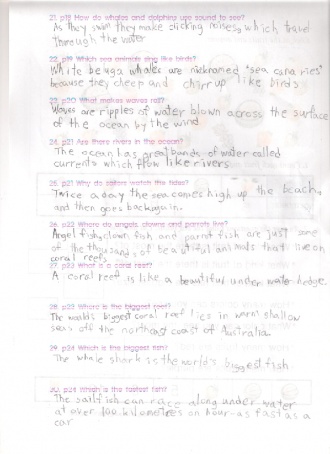 21. p19 How do whales and dolphins use sound to see?
As they swim they make clicking noises, which travel
through the water
22. p19 Which sea animals sing like birds?
White beluga whales are nicknamed "sea canaries"
because they cheep and chirrup like birds
23. p20 What makes waves roll?
Waves are ripples of water blown across the surface
of the ocean by the wind
24. p21 Are there rivers in the ocean?
The ocean has great bands of water called
currents which flow like rivers
25. p21 Why do sailors watch the tides?
Twice a day the sea comes high up the beach
and then goes back again.
26. p22 Where do angels, clowns and parrots live?
Angel fish, clown fish and parrot fish are just some
of the thousands of beautiful animals that live on
coral reefs
27. p23 What is a coral reef?
A coral reef is like a beautiful under water hedge.
28. p23 Where is the biggest reef?
The world's biggest coral reef lies in warm shallow
seas off the northeast coast of Australia.
29. p24 Which is the biggest fish?
The whale shark is the world's biggest fish
30. p24 Which is the fastest fish?
The sailfish can race along under-water
at over 100 kilometres an hour-as fast as a
car